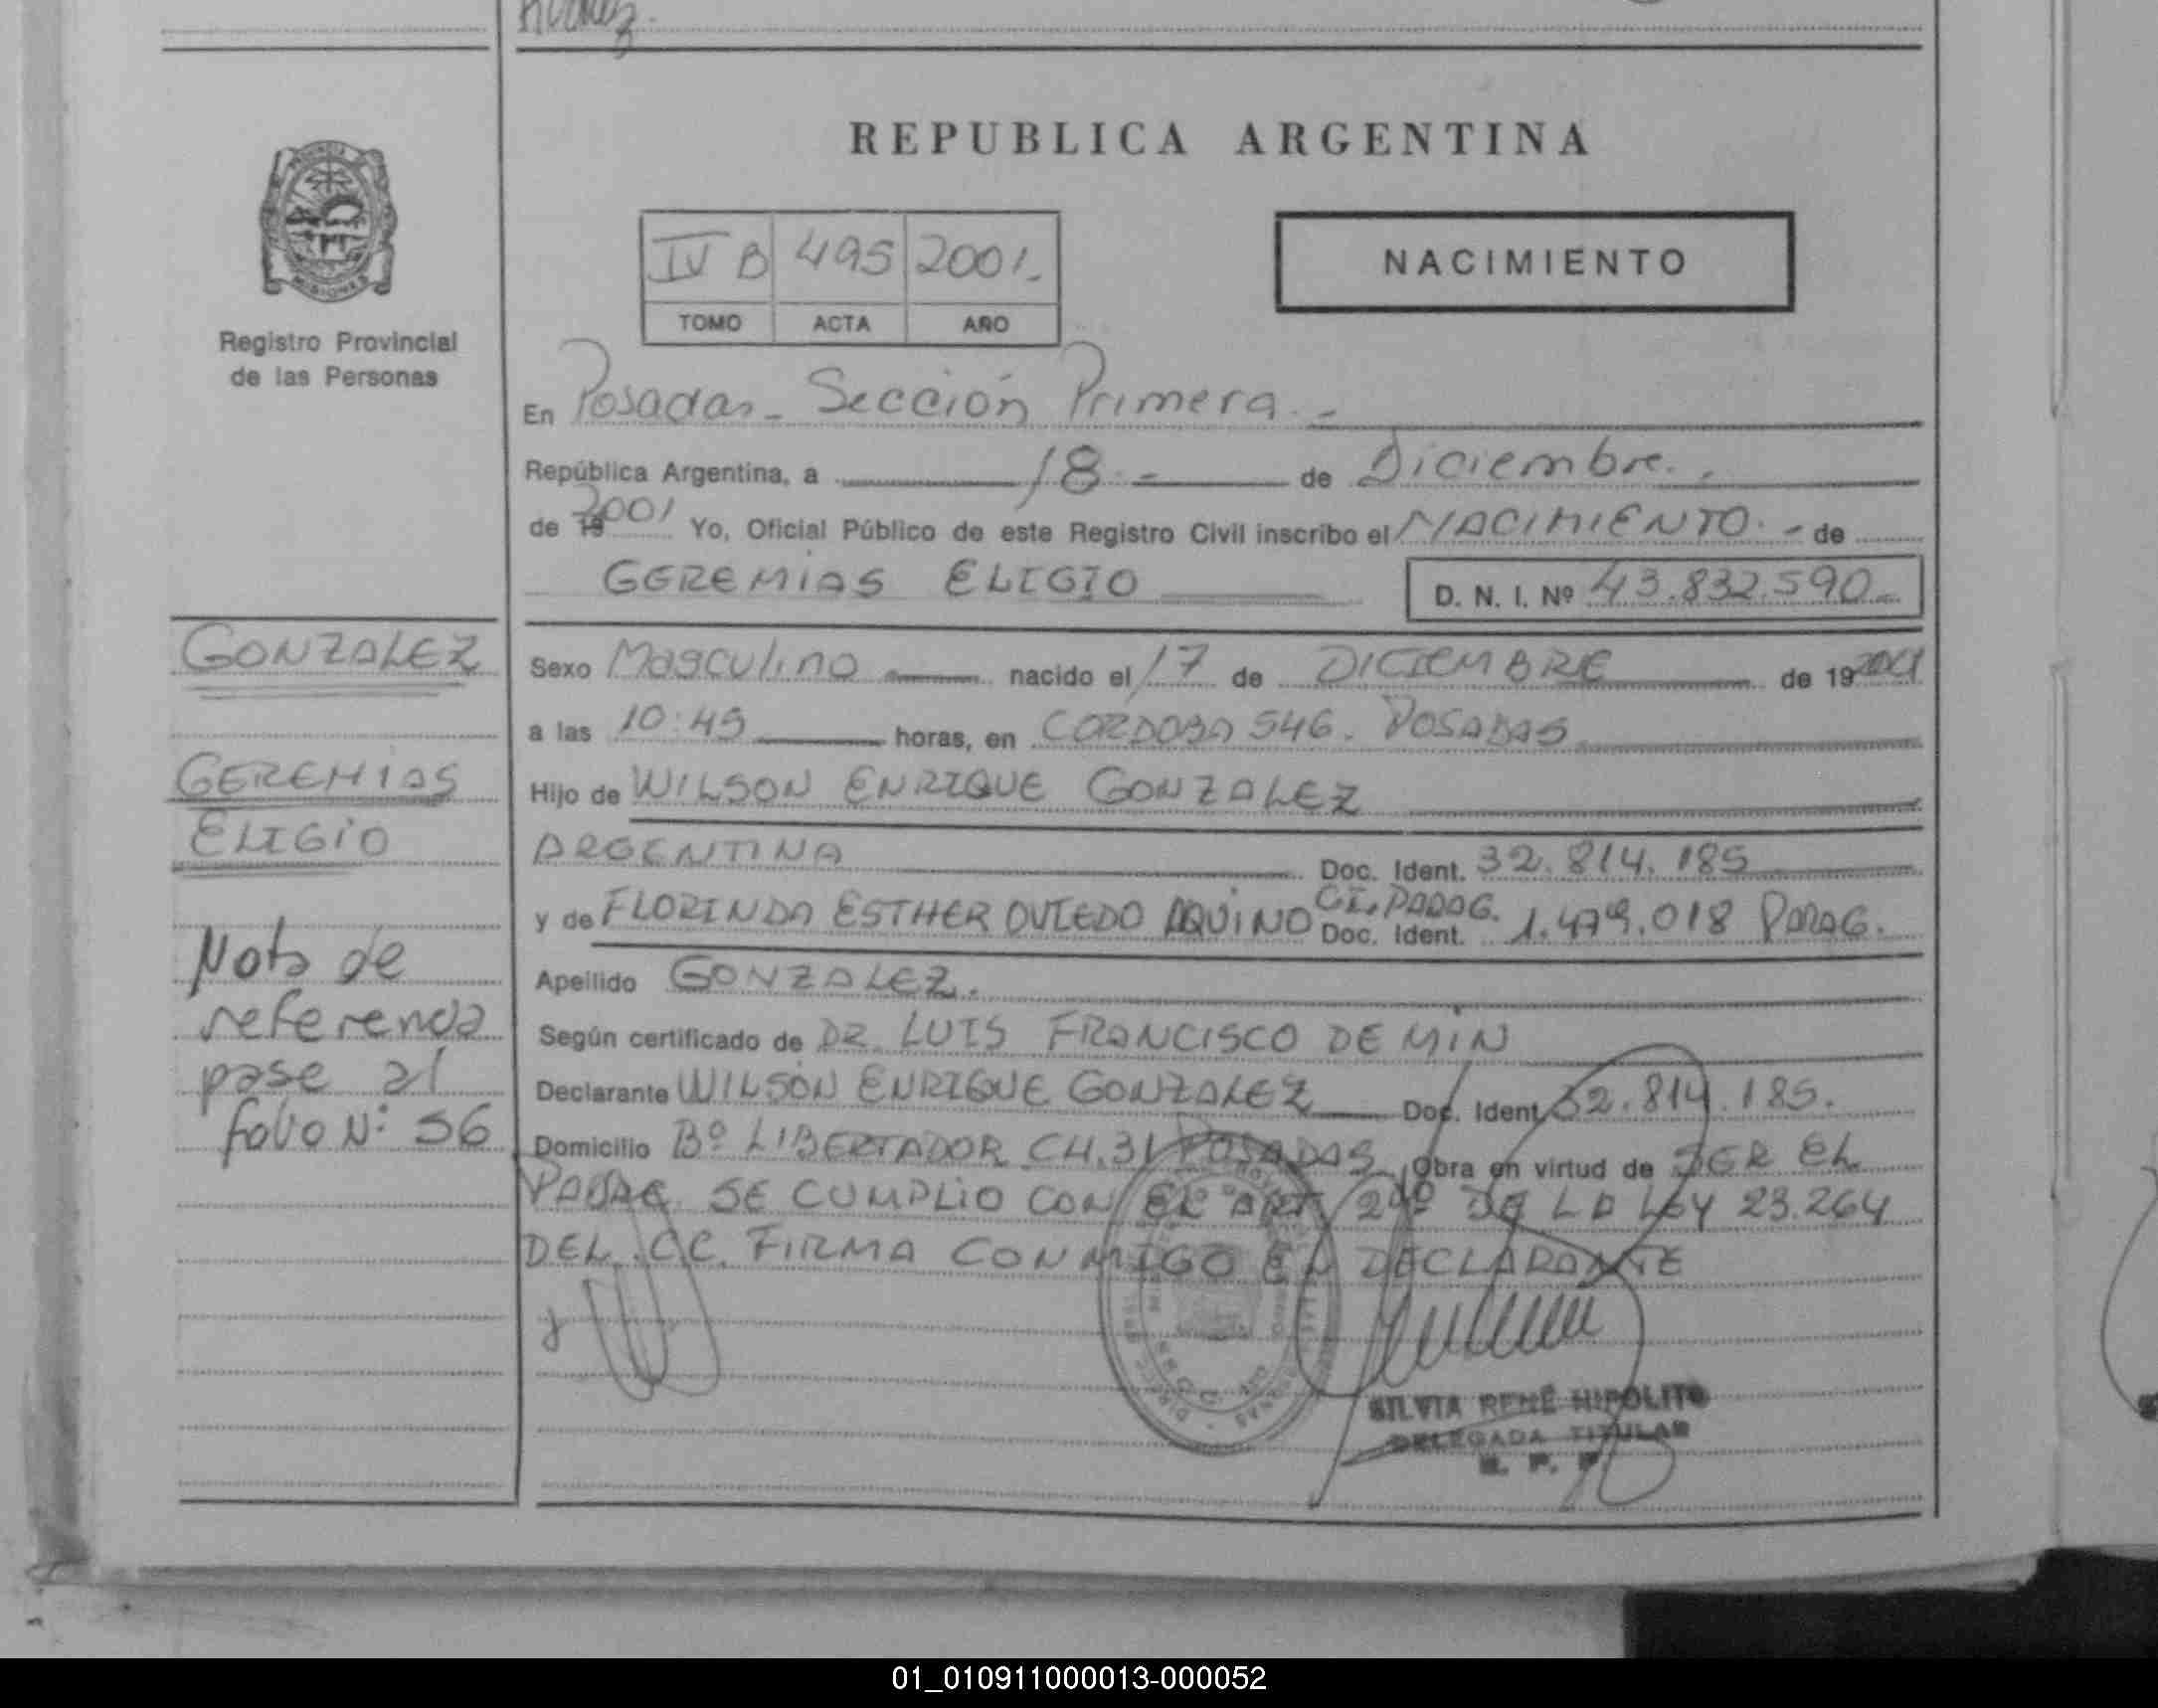 REPUBLICA ARGENTINA
PROVINCIA
MISIONES
Registro Provincial
de las Personas
IV B 495 2001.
TOMO ACTA AÑO
NACIMIENTO
En Posadas - Sección Primera. -
República Argentina, a 18 - de Diciembre.
de 19 2001 Yo, Oficial Público de este Registro Civil inscribo el NACIMIENTO. - de
GEREMIAS ELIGIO D. N. I. Nº 43.832.590-
GONZALEZ
GEREMIAS
ELIGIO
Nota de
referencia
pase al
folio Nº 56
Sexo Masculino nacido el 17 de DICIEMBRE de 19 2001
a las 10:45 horas, en CORDOBA 546. POSADAS
Hijo de WILSON ENRIQUE GONZALEZ
ARGENTINA Doc. Ident. 32.814.185
y de FLORINDA ESTHER OVIEDO AQUINO CI. PARAG. Doc. Ident. 1.479.018 PARAG.
Apellido GONZALEZ.
Según certificado de DR. LUIS FRANCISCO DE MIN
Declarante WILSON ENRIQUE GONZALEZ Doc. Ident 32.814.185.
Domicilio Bº LIBERTADOR CH.31 POSADAS Obra en virtud de SER EL
PADRE SE CUMPLIO CON EL ART 240 DE LA LEY 23.264
DEL CC. FIRMA CONMIGO EL DECLARANTE
SILVIA RENÉ HIPOLITO
DELEGADA TITULAR
01_010911000013-000052